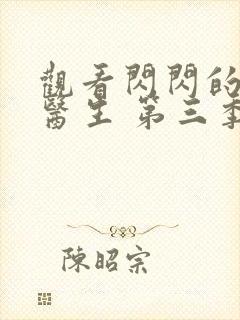 觀看閃閃的
醫生 第三季
陳昭宗